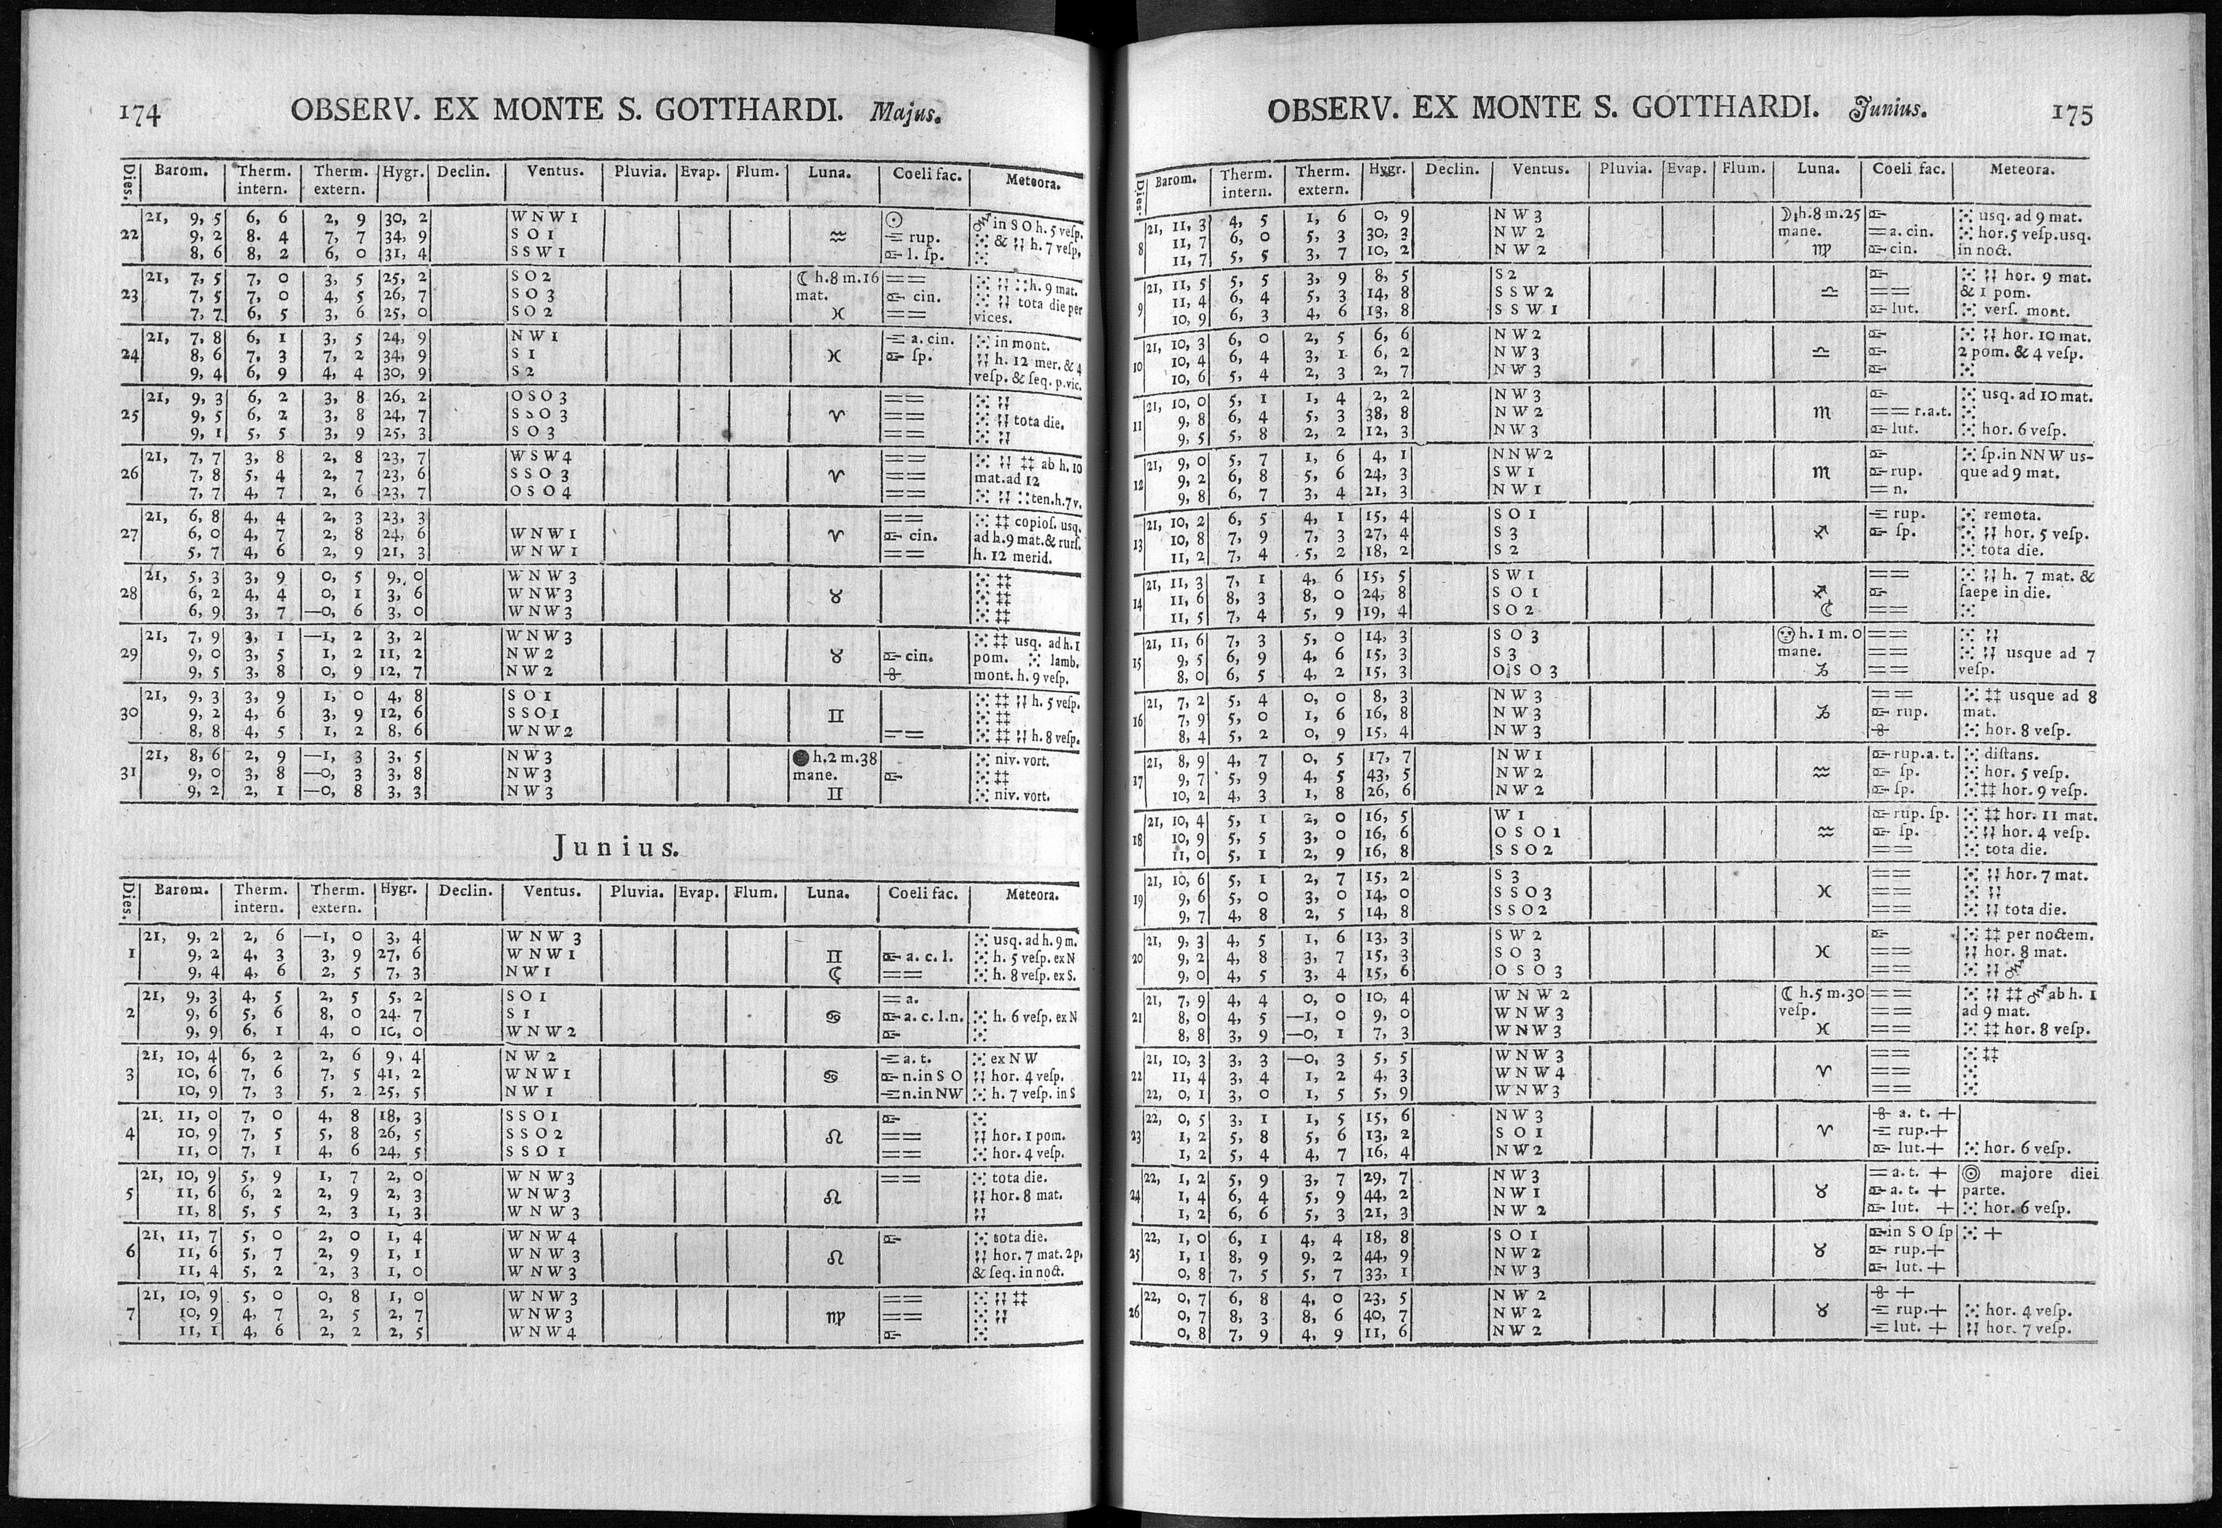 174 OBSERV. EX MONTE S. GOTTHARDI. Majus.
Dies. Barom. Therm. intern. Therm. extern. Hygr. Declin. Ventus. Pluvia. Evap. Flum. Luna. Coeli fac. Meteora.
21, 9, 5 6, 6 2, 9 30, 2 W N W 1 ☉ in S O h. 5 veſp.
22 9, 2 8. 4 7, 7 34, 9 S O 1 ♒ rup. & h. 7 veſp.
8, 6 8, 2 6, 0 31, 4 S S W 1 l. ſp.
21, 7, 5 7, 0 3, 5 25, 2 S O 2 ☾ h. 8 m. 16 == h. 9 mat.
23 7, 5 7, 0 4, 5 26, 7 S O 3 mat. cin. tota die per
7, 7 6, 5 3, 6 25, 0 S O 2 ♓ == vices.
21, 7, 8 6, 1 3, 5 24, 9 N W 1 a. cin. in mont.
24 8, 6 7, 3 7, 2 34, 9 S 1 ♓ ſp. h. 12 mer. & 4
9, 4 6, 9 4, 4 30, 9 S 2 veſp. & ſeq. p. vic.
21, 9, 3 6, 2 3, 8 26, 2 O S O 3 ==
25 9, 5 6, 2 3, 8 24, 7 S S O 3 ♈ == tota die.
9, 1 5, 5 3, 9 25, 3 S O 3 ==
21, 7, 7 3, 8 2, 8 23, 7 W S W 4 == ab h. 10
26 7, 8 5, 4 2, 7 23, 6 S S O 3 ♈ == mat. ad 12
7, 7 4, 7 2, 6 23, 7 O S O 4 == ten. h. 7 v.
21, 6, 8 4, 4 2, 3 23, 3 == copioſ. usq.
27 6, 0 4, 7 2, 8 24, 6 W N W 1 ♈ cin. ad h. 9 mat. & rurſ.
5, 7 4, 6 2, 9 21, 3 W N W 1 == h. 12 merid.
21, 5, 3 3, 9 0, 5 9, 0 W N W 3
28 6, 2 4, 4 0, 1 3, 6 W N W 3 ♉
6, 9 3, 7 —0, 6 3, 0 W N W 3
21, 7, 9 3, 1 —1, 2 3, 2 W N W 3 usq. ad h. 1
29 9, 0 3, 5 1, 2 11, 2 N W 2 ♉ cin. pom. lamb.
9, 5 3, 8 0, 9 12, 7 N W 2 mont. h. 9 veſp.
21, 9, 3 3, 9 1, 0 4, 8 S O 1 h. 5 veſp.
30 9, 2 4, 6 3, 9 12, 6 S S O 1 ♊
8, 8 4, 5 1, 2 8, 6 W N W 2 == h. 8 veſp.
21, 8, 6 2, 9 —1, 3 3, 5 N W 3 ● h. 2 m. 38 niv. vort.
31 9, 0 3, 8 —0, 3 3, 8 N W 3 mane.
9, 2 2, 1 —0, 8 3, 3 N W 3 ♊ niv. vort.
Junius.
Dies. Barom. Therm. intern. Therm. extern. Hygr. Declin. Ventus. Pluvia. Evap. Flum. Luna. Coeli fac. Meteora.
21, 9, 2 2, 6 —1, 0 3, 4 W N W 3 usq. ad h. 9 m.
1 9, 2 4, 3 3, 9 27, 6 W N W 1 ♊ a. c. l. h. 5 veſp. ex N
9, 4 4, 6 2, 5 7, 3 N W 1 ☾ == h. 8 veſp. ex S.
21, 9, 3 4, 5 2, 5 5, 2 S O 1 = a.
2 9, 6 5, 6 8, 0 24. 7 S 1 ♋ a. c. l. n. h. 6 veſp. ex N
9, 9 6, 1 4, 0 10, 0 W N W 2
21, 10, 4 6, 2 2, 6 9, 4 N W 2 a. t. ex N W
3 10, 6 7, 6 7, 5 41, 2 W N W 1 ♋ n. in S O hor. 4 veſp.
10, 9 7, 3 5, 2 25, 5 N W 1 n. in NW h. 7 veſp. in S
21, 11, 0 7, 0 4, 8 18, 3 S S O 1
4 10, 9 7, 5 5, 8 26, 5 S S O 2 ♌ == hor. 1 pom.
11, 0 7, 1 4, 6 24, 5 S S O 1 == hor. 4 veſp.
21, 10, 9 5, 9 1, 7 2, 0 W N W 3 == tota die.
5 11, 6 6, 2 2, 9 2, 3 W N W 3 ♌ hor. 8 mat.
11, 8 5, 5 2, 3 1, 3 W N W 3
21, 11, 7 5, 0 2, 0 1, 4 W N W 4 tota die.
6 11, 6 5, 7 2, 9 1, 1 W N W 3 ♌ hor. 7 mat. 2 p.
11, 4 5, 2 2, 3 1, 0 W N W 3 & ſeq. in noct.
21, 10, 9 5, 0 0, 8 1, 0 W N W 3 ==
7 10, 9 4, 7 2, 5 2, 7 W N W 3 ♍ ==
11, 1 4, 6 2, 2 2, 5 W N W 4
OBSERV. EX MONTE S. GOTTHARDI. Junius. 175
Dies. Barom. Therm. intern. Therm. extern. Hygr. Declin. Ventus. Pluvia. Evap. Flum. Luna. Coeli fac. Meteora.
21, 11, 3 4, 5 1, 6 0, 9 N W 3 ☽ h. 8 m. 25 usq. ad 9 mat.
8 11, 7 6, 0 5, 3 30, 3 N W 2 mane. = a. cin. hor. 5 veſp. usq.
11, 7 5, 5 3, 7 10, 2 N W 2 ♍ cin. in noct.
21, 11, 5 5, 5 3, 9 8, 5 S 2 hor. 9 mat.
9 11, 4 6, 4 5, 3 14, 8 S S W 2 ♎ == & 1 pom.
10, 9 6, 3 4, 6 13, 8 S S W 1 lut. verſ. mont.
21, 10, 3 6, 0 2, 5 6, 6 N W 2 hor. 10 mat.
10 10, 4 6, 4 3, 1 6, 2 N W 3 ♎ 2 pom. & 4 veſp.
10, 6 5, 4 2, 3 2, 7 N W 3
21, 10, 0 5, 1 1, 4 2, 2 N W 3 usq. ad 10 mat.
11 9, 8 6, 4 5, 3 38, 8 N W 2 ♏ == r. a. t.
9, 5 5, 8 2, 2 12, 3 N W 3 lut. hor. 6 veſp.
21, 9, 0 5, 7 1, 6 4, 1 N N W 2 ſp. in N N W us-
12 9, 2 6, 8 5, 6 24, 3 S W 1 ♏ rup. que ad 9 mat.
9, 8 6, 7 3, 4 21, 3 N W 1 = n.
21, 10, 2 6, 5 4, 1 15, 4 S O 1 rup. remota.
13 10, 8 7, 9 7, 3 27, 4 S 3 ♐ ſp. hor. 5 veſp.
11, 2 7, 4 5, 2 18, 2 S 2 tota die.
21, 11, 3 7, 1 4, 6 15, 5 S W 1 == h. 7 mat. &
14 11, 6 8, 3 8, 0 24, 8 S O 1 ♐ ſaepe in die.
11, 5 7, 4 5, 9 19, 4 S O 2 ☾ ==
21, 11, 6 7, 3 5, 0 14, 3 S O 3 h. 1 m. 0 ==
15 9, 5 6, 9 4, 6 15, 3 S 3 mane. == usque ad 7
8, 0 6, 5 4, 2 15, 3 O S O 3 ♑ == veſp.
21, 7, 2 5, 4 0, 0 8, 3 N W 3 == usque ad 8
16 7, 9 5, 0 1, 6 16, 8 N W 3 ♑ rup. mat.
8, 4 5, 2 0, 9 15, 4 N W 3 hor. 8 veſp.
21, 8, 9 4, 7 0, 5 17, 7 N W 1 rup. a. t. diſtans.
17 9, 7 5, 9 4, 5 43, 5 N W 2 ♒ ſp. hor. 5 veſp.
10, 2 4, 3 1, 8 26, 6 N W 2 ſp. hor. 9 veſp.
21, 10, 4 5, 1 2, 0 16, 5 W 1 rup. ſp. hor. 11 mat.
18 10, 9 5, 5 3, 0 16, 6 O S O 1 ♒ ſp. hor. 4 veſp.
11, 0 5, 1 2, 9 16, 8 S S O 2 == tota die.
21, 10, 6 5, 1 2, 7 15, 2 S 3 == hor. 7 mat.
19 9, 6 5, 0 3, 0 14, 0 S S O 3 ♓ ==
9, 7 4, 8 2, 5 14, 8 S S O 2 == tota die.
21, 9, 3 4, 5 1, 6 13, 3 S W 2 per noctem.
20 9, 2 4, 8 3, 7 15, 3 S O 3 ♓ == hor. 8 mat.
9, 0 4, 5 3, 4 15, 6 O S O 3 ==
21, 7, 9 4, 4 0, 0 10, 4 W N W 2 ☾ h. 5 m. 30 == ab h. 1
21 8, 0 4, 5 —1, 0 9, 0 W N W 3 veſp. == ad 9 mat.
8, 8 3, 9 —0, 1 7, 3 W N W 3 ♓ == hor. 8 veſp.
21, 10, 3 3, 3 —0, 3 5, 5 W N W 3 ==
22 11, 4 3, 4 1, 2 4, 3 W N W 4 ♈ ==
22, 0, 1 3, 0 1, 5 5, 9 W N W 3 ==
22, 0, 5 3, 1 1, 5 15, 6 N W 3 a. t. +
23 1, 2 5, 8 5, 6 13, 2 S O 1 ♈ rup. +
1, 2 5, 4 4, 7 16, 4 N W 2 lut. + hor. 6 veſp.
22, 1, 2 5, 9 3, 7 29, 7 N W 3 = a. t. + majore diei
24 1, 4 6, 4 5, 9 44, 2 N W 1 ♉ a. t. + parte.
1, 2 6, 6 5, 3 21, 3 N W 2 lut. + hor. 6 veſp.
22, 1, 0 6, 1 4, 4 18, 8 S O 1 in S O ſp +
25 1, 1 8, 9 9, 2 44, 9 N W 2 ♉ rup. +
0, 8 7, 5 5, 7 33, 1 N W 3 lut. +
22, 0, 7 6, 8 4, 0 23, 5 N W 2 +
26 0, 7 8, 3 8, 6 40, 7 N W 2 ♉ rup. + hor. 4 veſp.
0, 8 7, 9 4, 9 11, 6 N W 2 lut. + hor. 7 veſp.